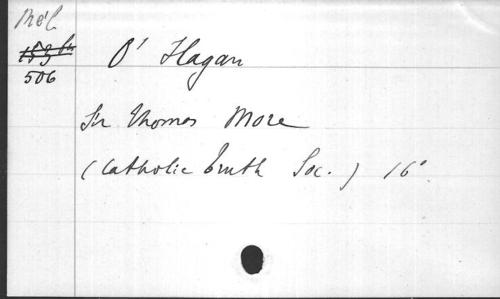 Mél
153
506
O'Hagan
Sr Thomas More
(Catholic Truth Soc.) 16°